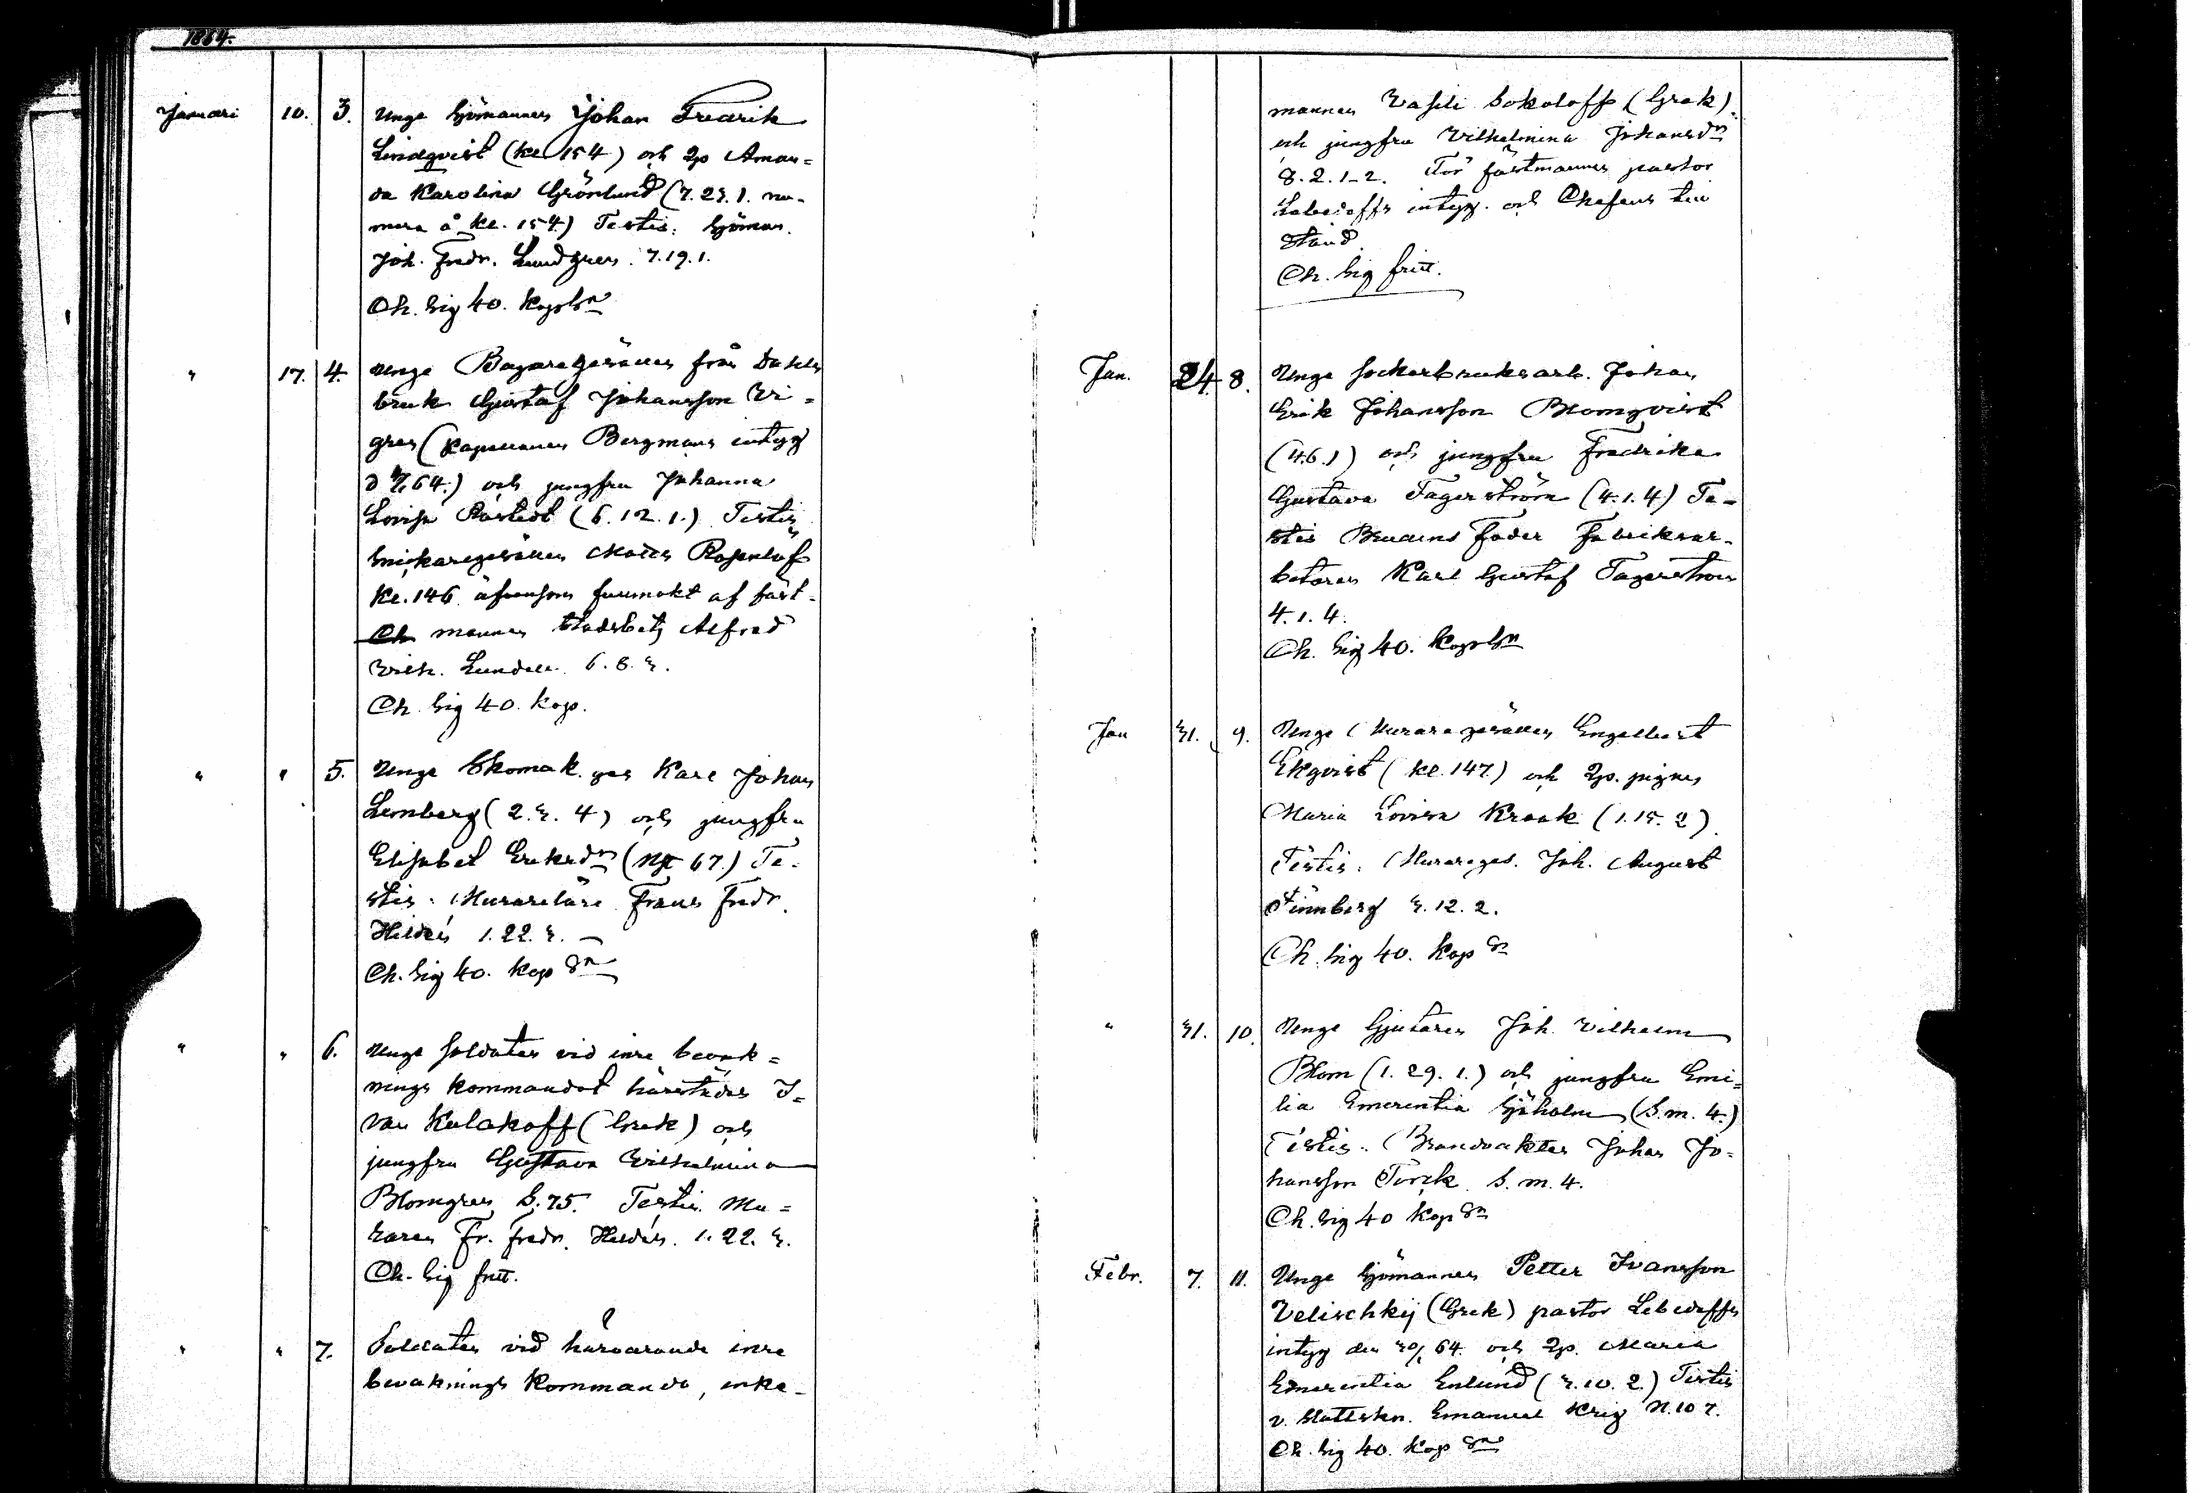 1864.
Januari 10. 3. Unge Sjömannen Johan Fredrik
Lindqvist (kl. 154) och 2p Aman-
da Karolina Grönlund (7.23.1. nu-
mera å kl. 154) Testis: Sjöman.
Joh. Fredr. Lundgren. 7.19.1.
Ch. Sig 40. Kop Sn
" 17. 4. Unge Bagaregesällen från Dahls
bruk Gustaf Johansson Vi=
gren (Kapellanen Bergmans intyg
64.) och jungfru Johanna
Lovisa (6.12.1.) Testis
Snickaregesällen Rosenlöf
Kl. 146 äfvensom af fäst-
Ch mannen Alfred
Wilh. Lundell 6.8.3.
Ch. Sig 40. Kop.
" " 5. Unge Skomak. ges Karl Johan
Lernberg (2.3.4) och jungfru
Elisabet Eriksdn (67.) Te-
stis: Murarelär. Frans Fredr.
Heldén 1.22.3.
Ch. Sig 40. Kop Sn
" " 6. Unge Soldaten vid inre bevak=
nings kommandot härstädes I=
van Kulakoff (Grek) och
jungfru Gustava Wilhelmina
Blomgren S.75. Testis Mu=
raren Fr. Fredr. Heldén. 1.22.3.
Ch. Sig fritt.
" " 7. Soldaten vid härvarande inre
bevaknings Kommando, enke-
mannen Vasili Sokoloff (Grek).
och jungfru Vilhelmina Johansdn
8.2.1-2. För fästmannen pastor
Lebedeffs intyg. och Chefens till
stånd.
Ch. Sig fritt.
Jan. 24 8. Unge Sockerbruksarb. Johan
Erik Johansson Blomqvist
(4.6.1) och jungfru Fredrika
Gustava Fagerström (4.1.4) Te-
stis Brudens Fader Fabriksar-
betaren Karl Gustaf Fagerström
4.1.4.
Ch. Sig 40. Kop Sn
Jan 31. 9. Unge Muraregesällen Engelbert
Ekqvist (kl. 147) och 2p. pigan
Maria Lovisa Kraak (1.15.2).
Testis: Murareges. Joh. August
Finnberg 3.12.2.
Ch. Sig 40. Kop Sn
" 31. 10. Unge Gjutaren Joh. Vilhelm
Blom (1.29.1.) och jungfru Emi=
lia Emerentia Sjöholm (S.m.4.)
Testis: Brandvakten Johan Jo-
hansson Törck. S.m.4.
Ch. Sig 40 Kop Sn
Febr. 7. 11. Unge Sjömannen Petter Ivansson
Velischkij (Grek) pastor Lebedeffs
intyg den 30/1 64. och 2p. Maria
Emerentia Enlund (3.10.2.) Testis
v. Emanuel Krig N.107.
Ch. Sig 40. Kop Sn